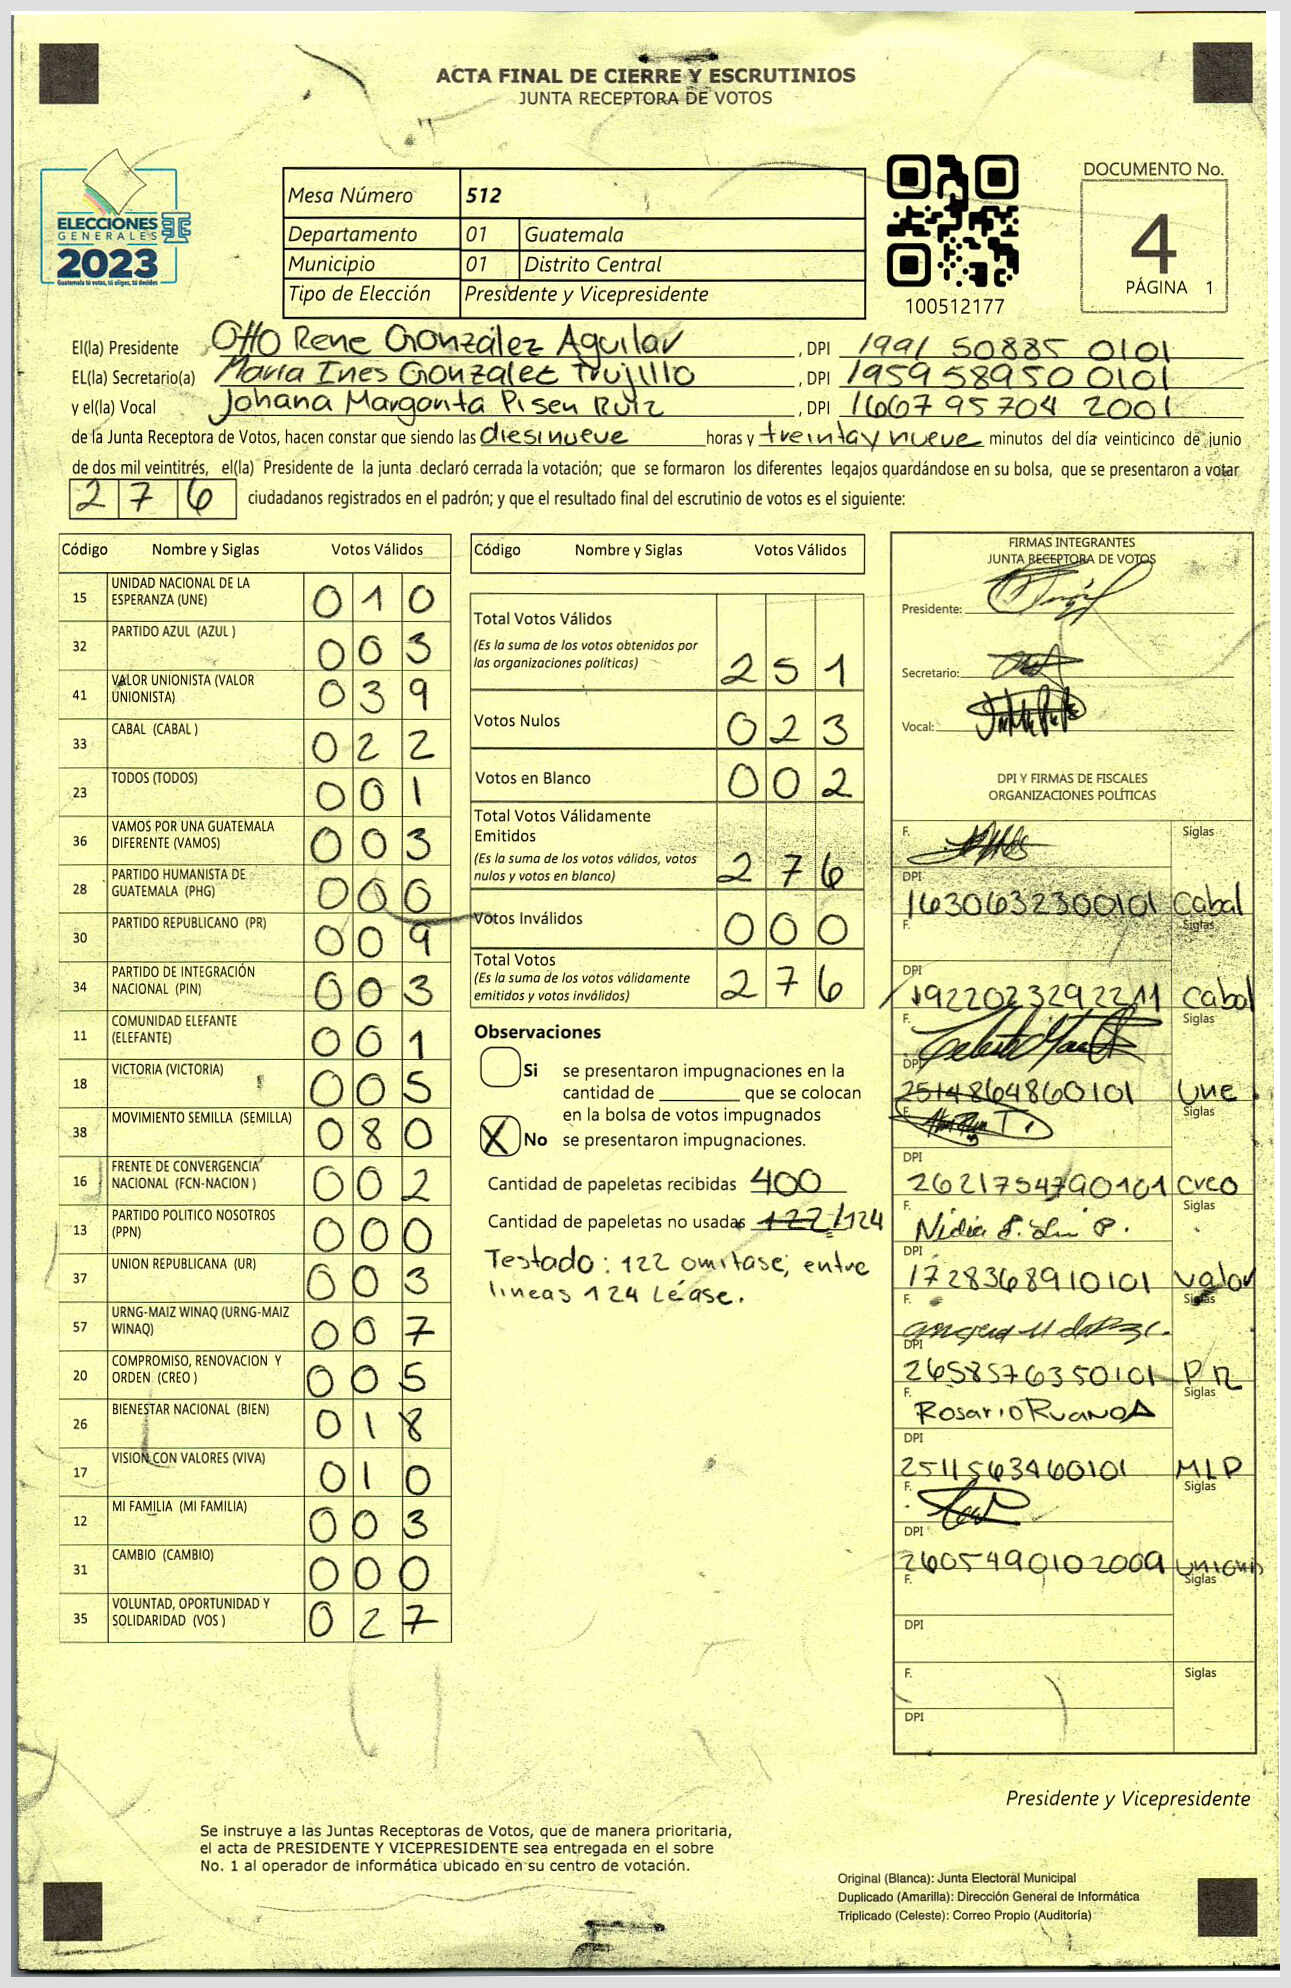 ACTA FINAL DE CIERRE Y ESCRUTINIOS
JUNTA RECEPTORA DE VOTOS
ELECCIONES
GENERALES
2023
Guatemala tú votas, tú eliges, tú decides
Mesa Número 512
Departamento 01 Guatemala
Municipio 01 Distrito Central
Tipo de Elección Presidente y Vicepresidente
100512177
DOCUMENTO No.
4
PÁGINA 1
El(la) Presidente Otto Rene González Aguilar, DPI 1991 50885 0101
EL(la) Secretario(a) Maria Ines Gonzalez Trujillo, DPI 1959 58950 0101
y el(la) Vocal Johana Margarita Pisen Ruiz, DPI 1667 95704 2001
de la Junta Receptora de Votos, hacen constar que siendo las diesinueve horas y treinta y nueve minutos del día veinticinco de junio
de dos mil veintitrés, el(la) Presidente de la junta declaró cerrada la votación; que se formaron los diferentes legajos guardándose en su bolsa, que se presentaron a votar
276 ciudadanos registrados en el padrón; y que el resultado final del escrutinio de votos es el siguiente:
Código Nombre y Siglas Votos Válidos
15 UNIDAD NACIONAL DE LA ESPERANZA (UNE) 010
32 PARTIDO AZUL (AZUL ) 003
41 VALOR UNIONISTA (VALOR UNIONISTA) 039
33 CABAL (CABAL ) 022
23 TODOS (TODOS) 001
36 VAMOS POR UNA GUATEMALA DIFERENTE (VAMOS) 003
28 PARTIDO HUMANISTA DE GUATEMALA (PHG) 000
30 PARTIDO REPUBLICANO (PR) 009
34 PARTIDO DE INTEGRACIÓN NACIONAL (PIN) 003
11 COMUNIDAD ELEFANTE (ELEFANTE) 001
18 VICTORIA (VICTORIA) 005
38 MOVIMIENTO SEMILLA (SEMILLA) 080
16 FRENTE DE CONVERGENCIA NACIONAL (FCN-NACION ) 002
13 PARTIDO POLITICO NOSOTROS (PPN) 000
37 UNION REPUBLICANA (UR) 003
57 URNG-MAIZ WINAQ (URNG-MAIZ WINAQ) 007
20 COMPROMISO, RENOVACION Y ORDEN (CREO ) 005
26 BIENESTAR NACIONAL (BIEN) 018
17 VISION CON VALORES (VIVA) 010
12 MI FAMILIA (MI FAMILIA) 003
31 CAMBIO (CAMBIO) 000
35 VOLUNTAD, OPORTUNIDAD Y SOLIDARIDAD (VOS ) 027
Código Nombre y Siglas Votos Válidos
Total Votos Válidos
(Es la suma de los votos obtenidos por
las organizaciones políticas) 251
Votos Nulos 023
Votos en Blanco 002
Total Votos Válidamente
Emitidos
(Es la suma de los votos válidos, votos
nulos y votos en blanco) 276
Votos Inválidos 000
Total Votos
(Es la suma de los votos válidamente
emitidos y votos inválidos) 276
Observaciones
Si se presentaron impugnaciones en la
cantidad de ________ que se colocan
en la bolsa de votos impugnados
X No se presentaron impugnaciones.
Cantidad de papeletas recibidas 400
Cantidad de papeletas no usadas 122/124
Testado: 122 omitase, entre
lineas 124 Léase.
FIRMAS INTEGRANTES
JUNTA RECEPTORA DE VOTOS
Presidente:
Secretario:
Vocal:
DPI Y FIRMAS DE FISCALES
ORGANIZACIONES POLÍTICAS
F. Siglas
DPI 1630632300101 Cabal
F. Siglas
DPI 1922023292211 Cabal
F. Siglas
DPI 2514864860101 Une
F. Siglas
DPI 2621754790101 Creo
F. Nidia Siglas
DPI 1728368910101 Valor
F. Siglas
DPI 2658576350101 PR
F. Rosario Ruano Siglas
DPI 2511563460101 MLP
F. Siglas
DPI 2605490102009 Unionis
F. Siglas
DPI
F. Siglas
DPI
Presidente y Vicepresidente
Se instruye a las Juntas Receptoras de Votos, que de manera prioritaria,
el acta de PRESIDENTE Y VICEPRESIDENTE sea entregada en el sobre
No. 1 al operador de informática ubicado en su centro de votación.
Original (Blanca): Junta Electoral Municipal
Duplicado (Amarilla): Dirección General de Informática
Triplicado (Celeste): Correo Propio (Auditoría)